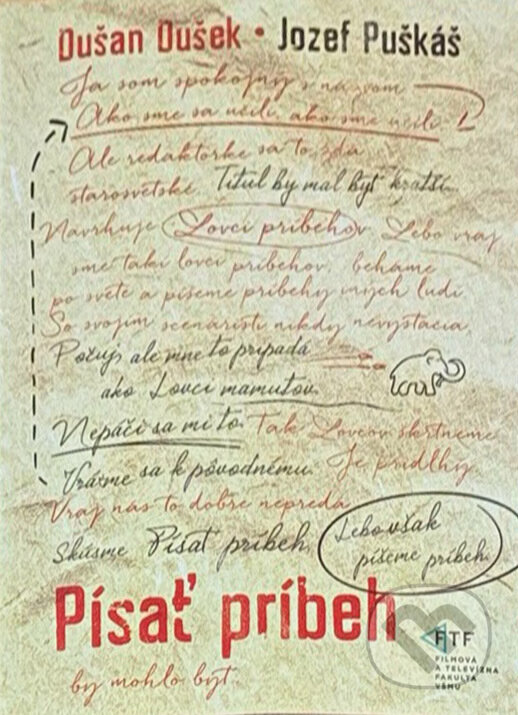 Dušan Dušek • Jozef Puškáš
Ja som spokojný s názvom
Ako sme sa učili, ako sme učili!
Ale redaktorke sa to zdá
starosvetské. Titul by mal byť kratší.
Navrhuje Lovci príbehov. Lebo vraj
sme takí lovci príbehov, beháme
po svete a píšeme príbehy iných ľudí.
So svojím scenáristi nikdy nevystačia.
Počuj, ale mne to pripadá
ako Lovci mamutov.
Nepáči sa mi to. Tak Lovcov škrtneme.
Vráťme sa k pôvodnému. Je pridlhý.
Vraj nás to dobre nepredá.
Skúsme Písať príbeh. Lebo však
píšeme príbeh.
Písať príbeh
by mohlo byť.
FTF
FILMOVÁ
A TELEVÍZNA
FAKULTA
VŠMU